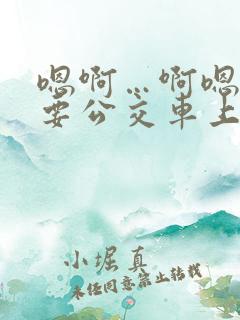 嗯啊…啊嗯
要公交车上
小堀真
未经同意禁止转载